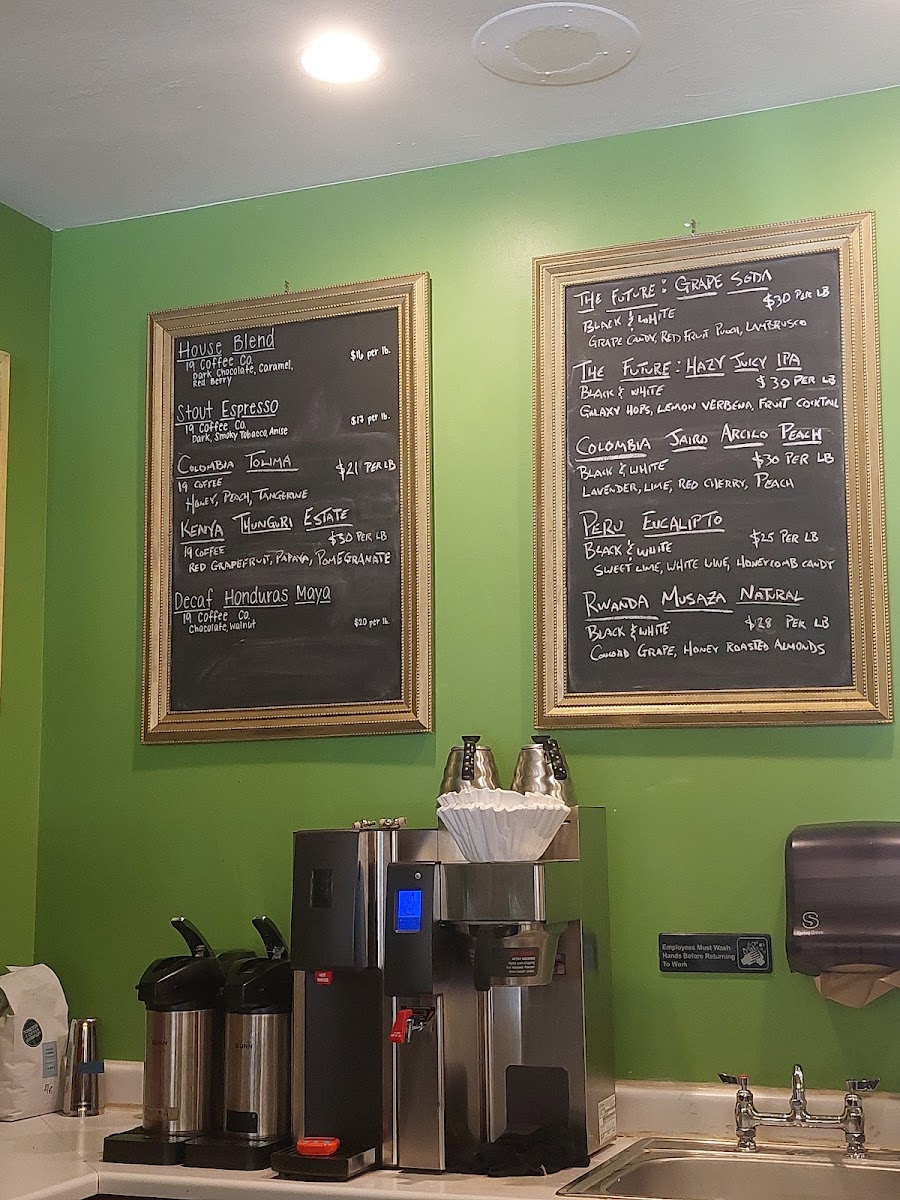 House Blend
19 Coffee Co.
$16 per lb.
Dark Chocolate, Caramel,
Red Berry
Stout Espresso
19 Coffee Co.
$17 per lb.
Dark, Smoky Tobacco, Anise
COLOMBIA TOLIMA
$21 PER LB
19 COFFEE
HONEY, PEACH, TANGERINE
KENYA THUNGURI ESTATE
19 COFFEE
$30 PER LB
RED GRAPEFRUIT, PAPAYA, POMEGRANATE
Decaf Honduras Maya
19 Coffee Co.
$20 per lb.
Chocolate, Walnut
THE FUTURE: GRAPE SODA
$30 PER LB
BLACK & WHITE
GRAPE CANDY, RED FRUIT PUNCH, LAMBRUSCO
THE FUTURE: HAZY JUICY IPA
BLACK & WHITE
$30 PER LB
GALAXY HOPS, LEMON VERBENA, FRUIT COCKTAIL
COLOMBIA JAIRO ARCILO PEACH
BLACK & WHITE
$30 PER LB
LAVENDER, LIME, RED CHERRY, PEACH
PERU EUCALIPTO
BLACK & WHITE
$25 PER LB
SWEET LIME, WHITE WINE, HONEYCOMB CANDY
RWANDA MUSAZA NATURAL
BLACK & WHITE
$28 PER LB
CONCORD GRAPE, HONEY ROASTED ALMONDS
Employees Must Wash
Hands Before Returning
To Work
S
BUNN
BUNN